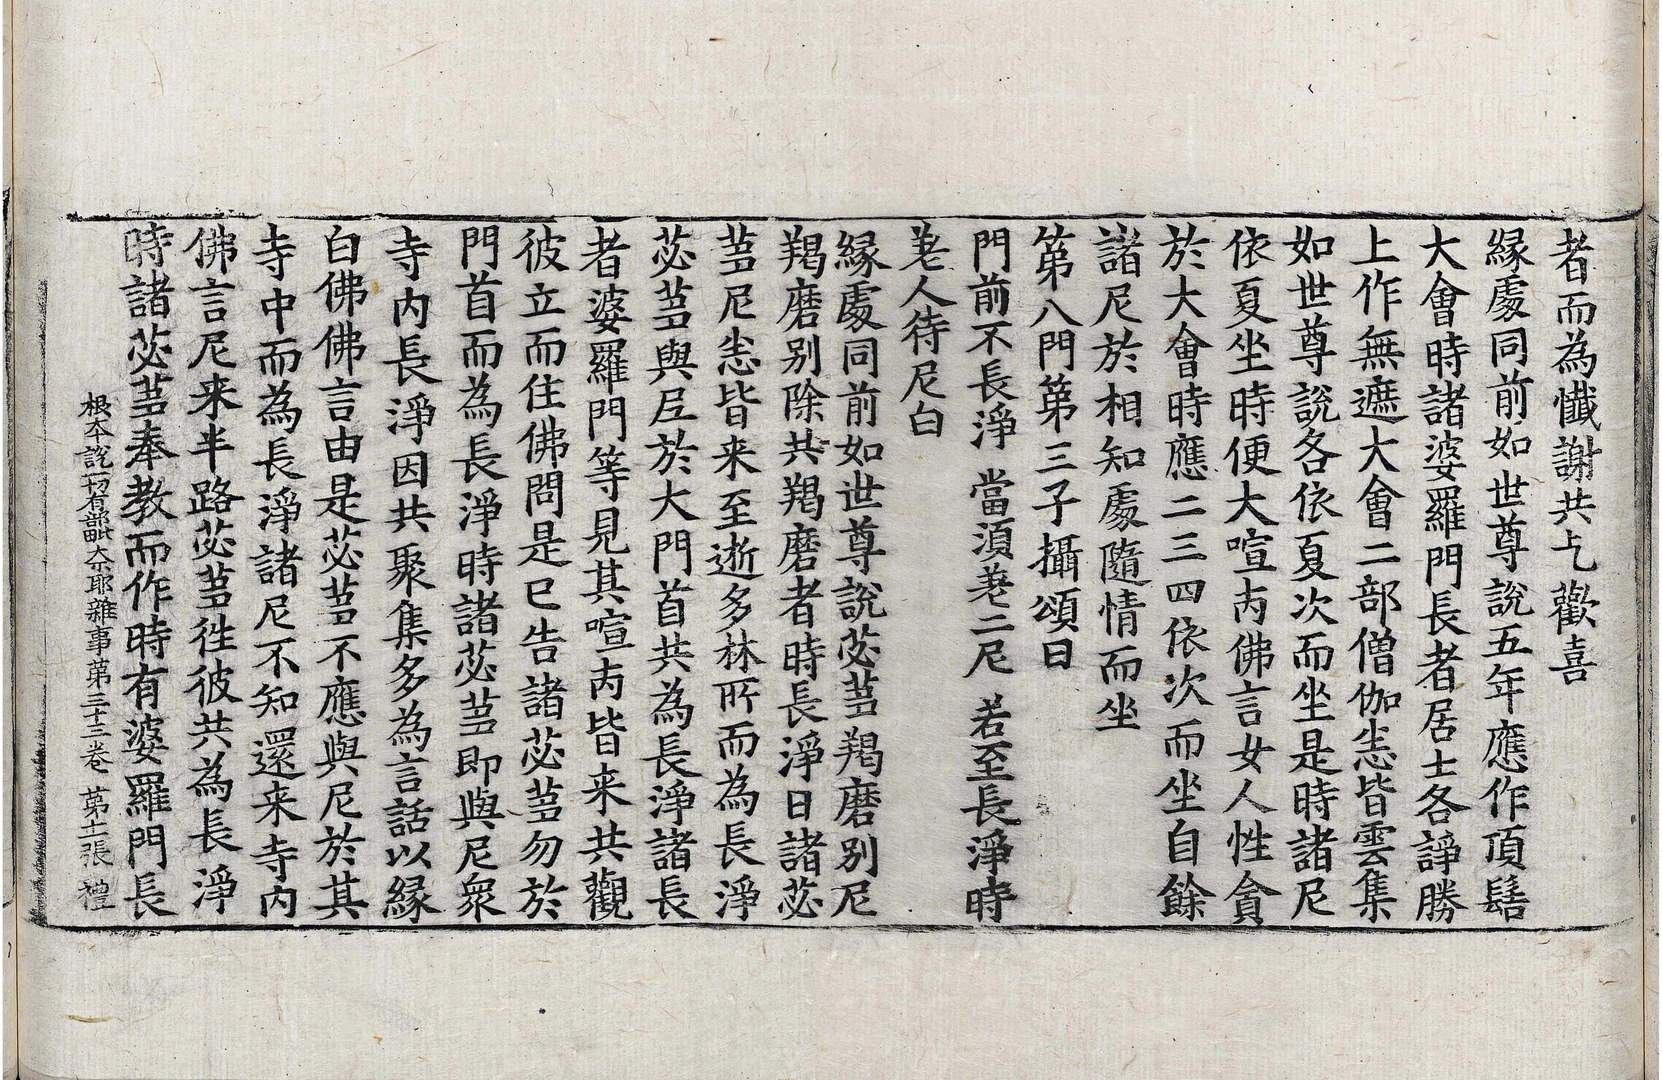 者而為懺謝共乞歡喜
緣處同前如世尊說五年應作頂髻
大會時諸婆羅門長者居士各諍勝
上作無遮大會二部僧伽恙皆雲集
如世尊說各依夏次而坐是時諸尼
依夏坐時便大喧丙佛言女人性貪
於大會時應二三四依次而坐自餘
諸尼於相知處隨情而坐
第八門第三子攝頌曰
門前不長淨 當湏差二尼 若至長淨時
差人待尼白
緣處同前如世尊說苾蒭羯磨別尼
羯磨別除共羯磨者時長淨日諸苾
蒭尼恙皆来至逝多林所而為長淨
苾蒭與尼於大門首共為長淨諸長
者婆羅門等見其喧丙皆来共觀
彼立而住佛問是已告諸苾蒭勿於
門首而為長淨時諸苾蒭即與尼衆
寺內長淨因共聚集多為言話以緣
白佛佛言由是苾蒭不應與尼於其
寺中而為長淨諸尼不知還来寺內
佛言尼来半路苾蒭往彼共為長淨
時諸苾蒭奉教而作時有婆羅門長
根本說一切有部毗奈耶雜事第三十三卷 第十一張 禮